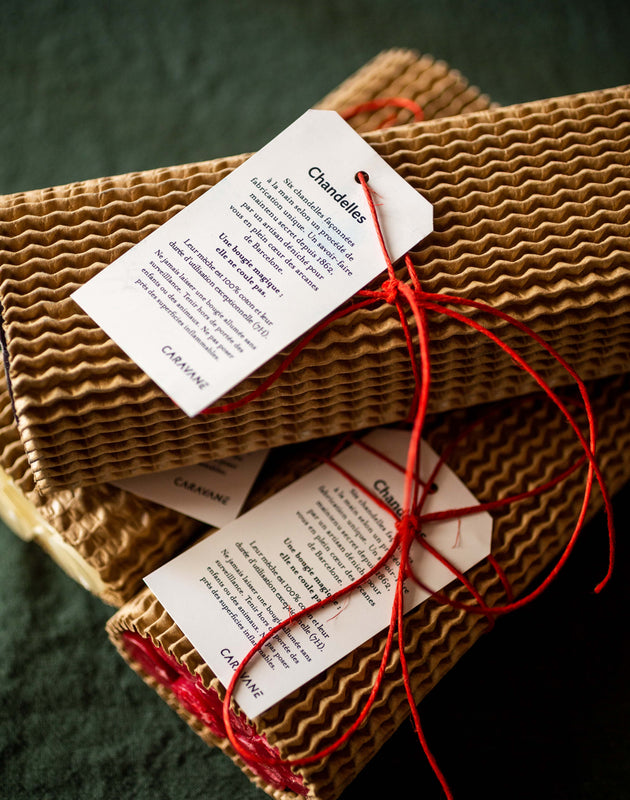 Chandelles
Six chandelles façonnées
à la main selon un procédé de
fabrication unique. Un savoir-faire
maintenu secret depuis 1862,
par un artisan déniché pour
vous en plein cœur des arcanes
de Barcelone.
Une bougie magique :
elle ne coule pas.
Leur mèche est 100% coton et leur
durée d'utilisation exceptionnelle (7H).
Ne jamais laisser une bougie allumée sans
surveillance. Tenir hors de portée des
enfants ou des animaux. Ne pas poser
près des superficies inflammables.
CARAVANE
CARAVANE
Chandelles
Six chandelles façonnées
à la main selon un procédé de
fabrication unique. Un savoir
maintenu secret depuis 1862,
par un artisan déniché pour
vous en plein cœur des arcanes
de Barcelone.
Une bougie magique
elle ne coule pas.
Leur mèche est 100% coton et leur
durée d'utilisation exceptionnelle (7H).
Ne jamais laisser une bougie allumée sans
surveillance. Tenir hors de portée des
enfants ou des animaux. Ne pas poser
près des superficies inflammables.
CARAVANE